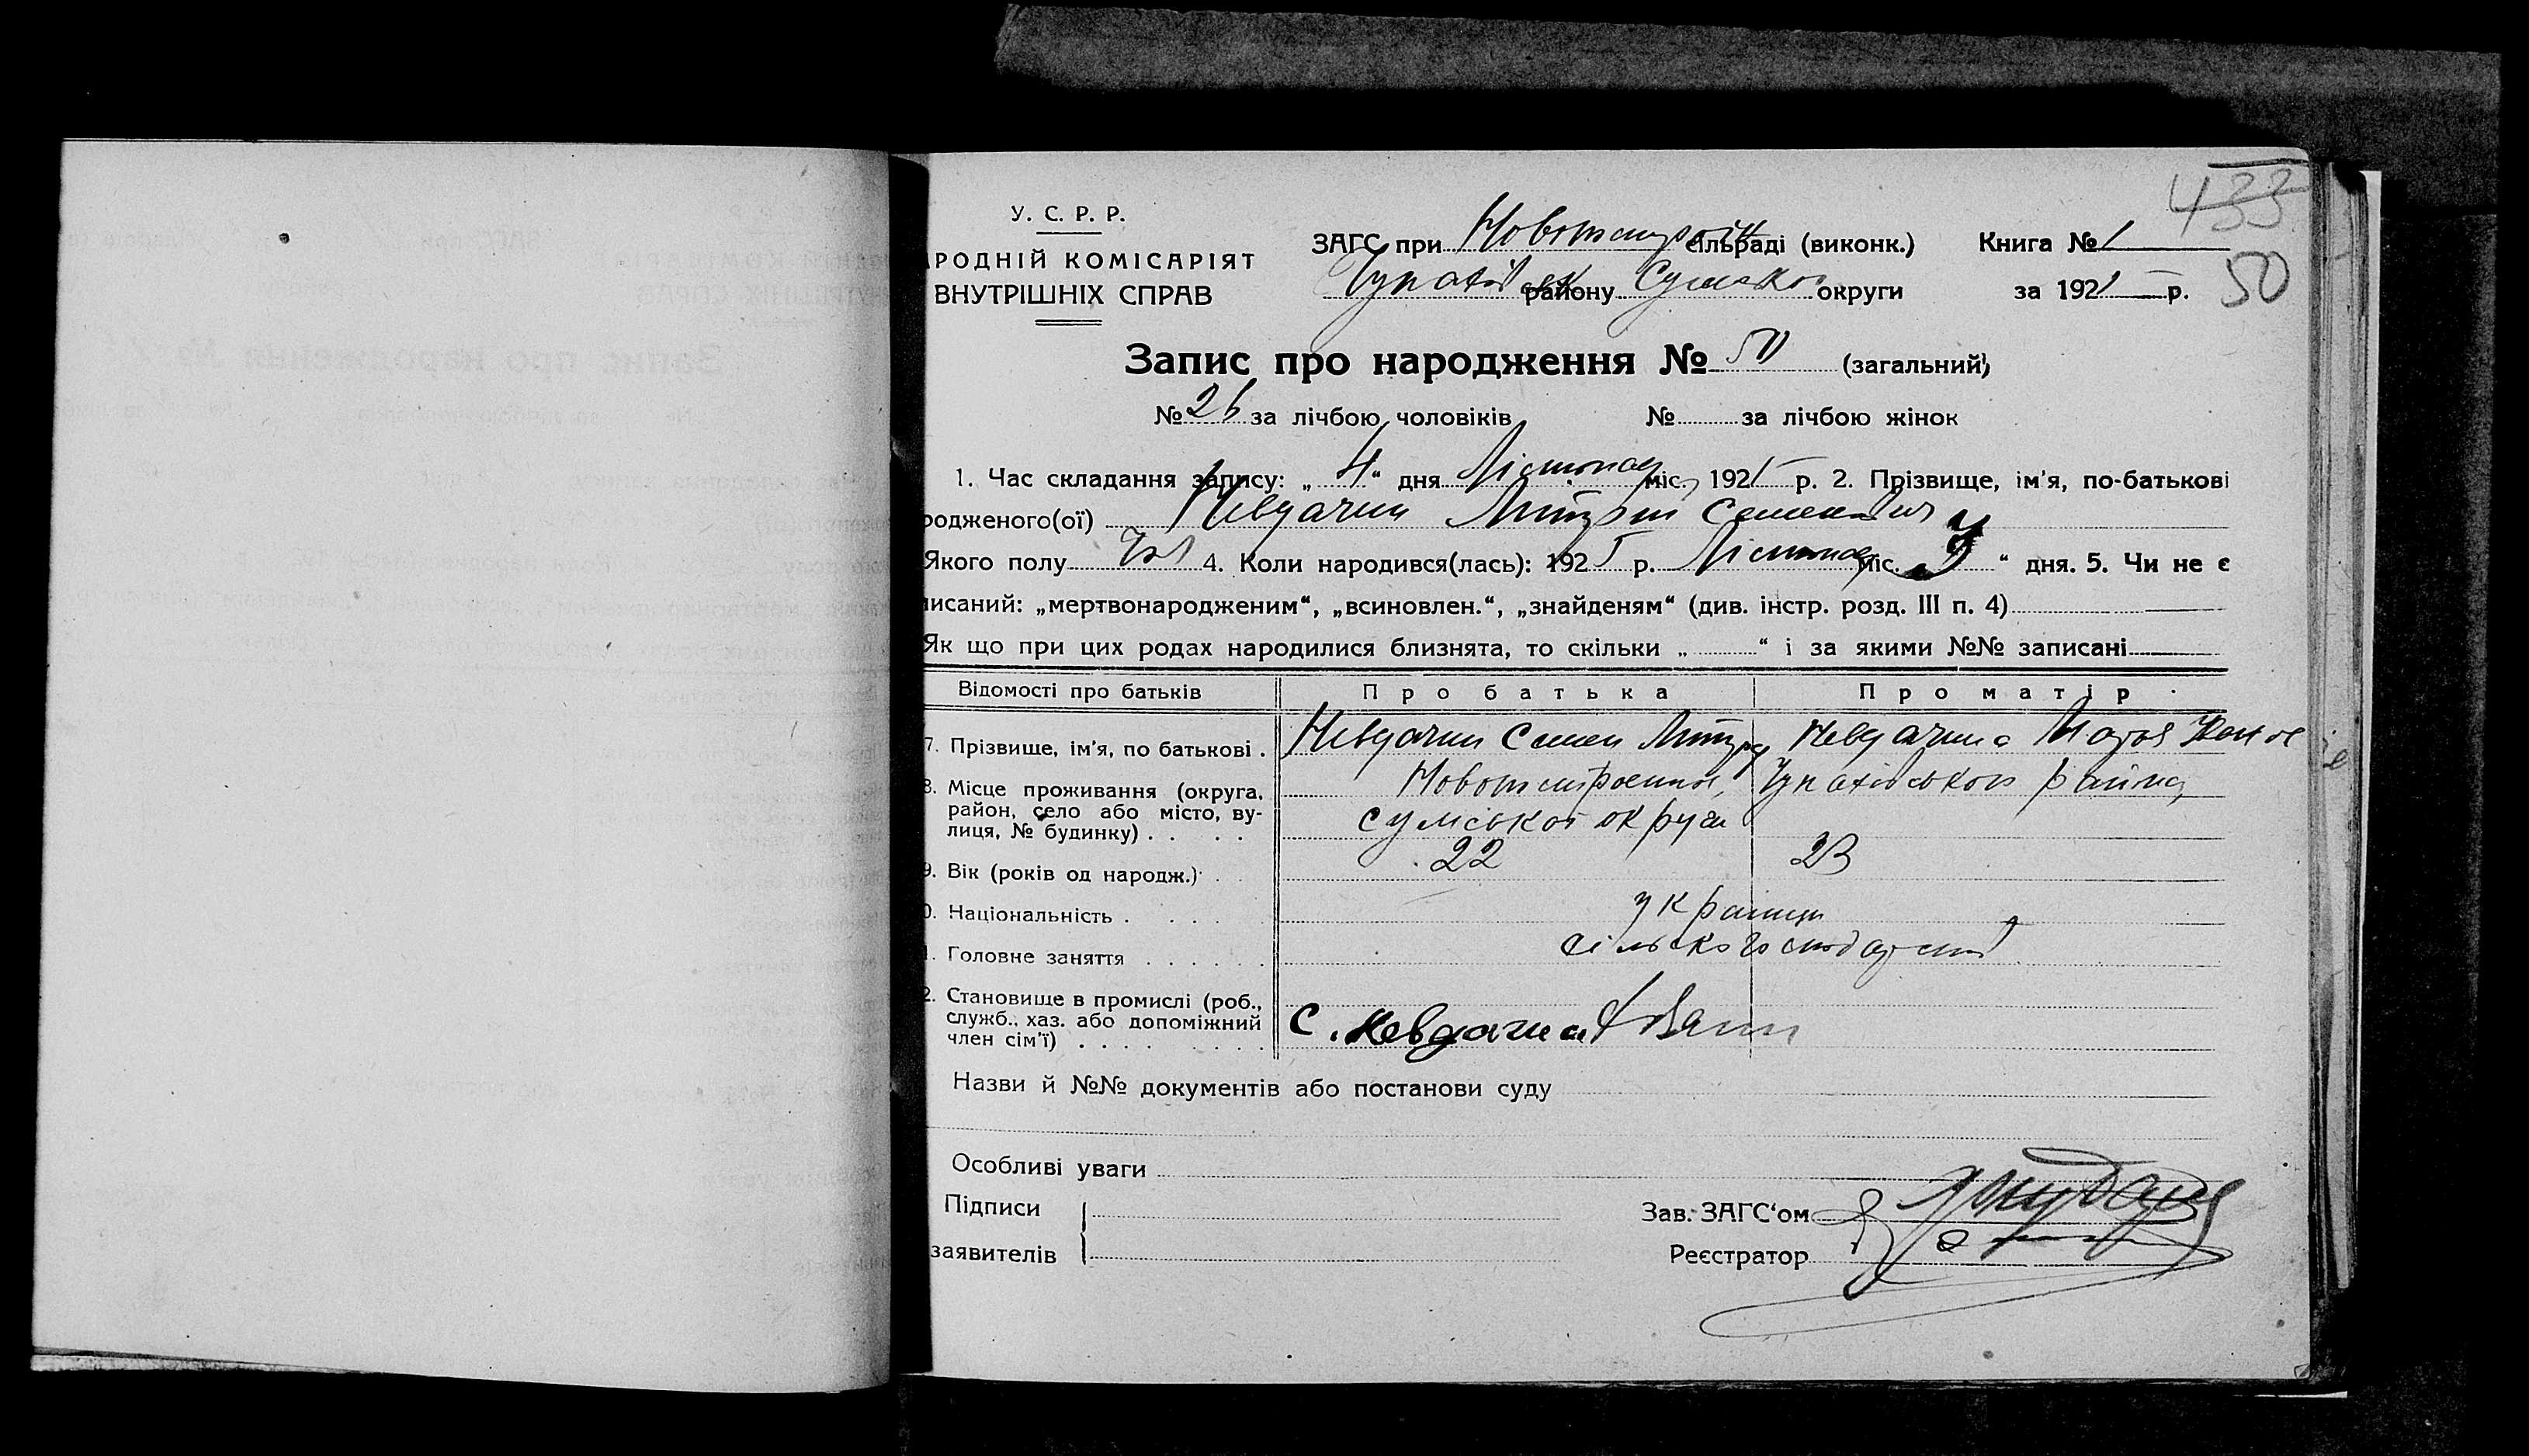 433
У. С. Р. Р.
РОДНІЙ КОМІСАРІЯТ
ВНУТРІШНІХ СПРАВ
ЗАГС при сільраді (виконк.) Книга № 1
району округи за 192 р. 50
Запис про народження № 50 (загальний)
№ 26 за лічбою чоловіків № за лічбою жінок
1. Час складання запису: „ 4 “ дня Лістопад міс. 192 р. 2. Прізвище, ім'я, по-батькові
родженого(ої) Невдачин Дмитрий Семенович
Якого полу Чол 4. Коли народився(лась): 192 р. Лістопад міс. “ дня. 5. Чи не є
писаний: „мертвонародженим“, „всиновлен.“, „знайденям“ (див. інстр. розд. III п. 4)
Як що при цих родах народилися близнята, то скільки „ “ і за якими №№ записані
Відомості про батьків Про батька Про матір
7. Прізвище, ім'я, по батькові . Невдачин Семен Невдачина
8. Місце проживання (округа, район, село або місто, вулиця, № будинку) . . . . Чупахівського району
Сумської округи
9. Вік (років од народж.) . 22 23
0. Національність . . . . українці
1. Головне заняття . . . . . .
2. Становище в промислі (роб., служб., хаз. або допоміжний член сім'ї) . . . . . . . . С. Невдачин
Назви й №№ документів або постанови суду
Особливі уваги
Підписи
заявителів
Зав. ЗАГС'ом
Реєстратор